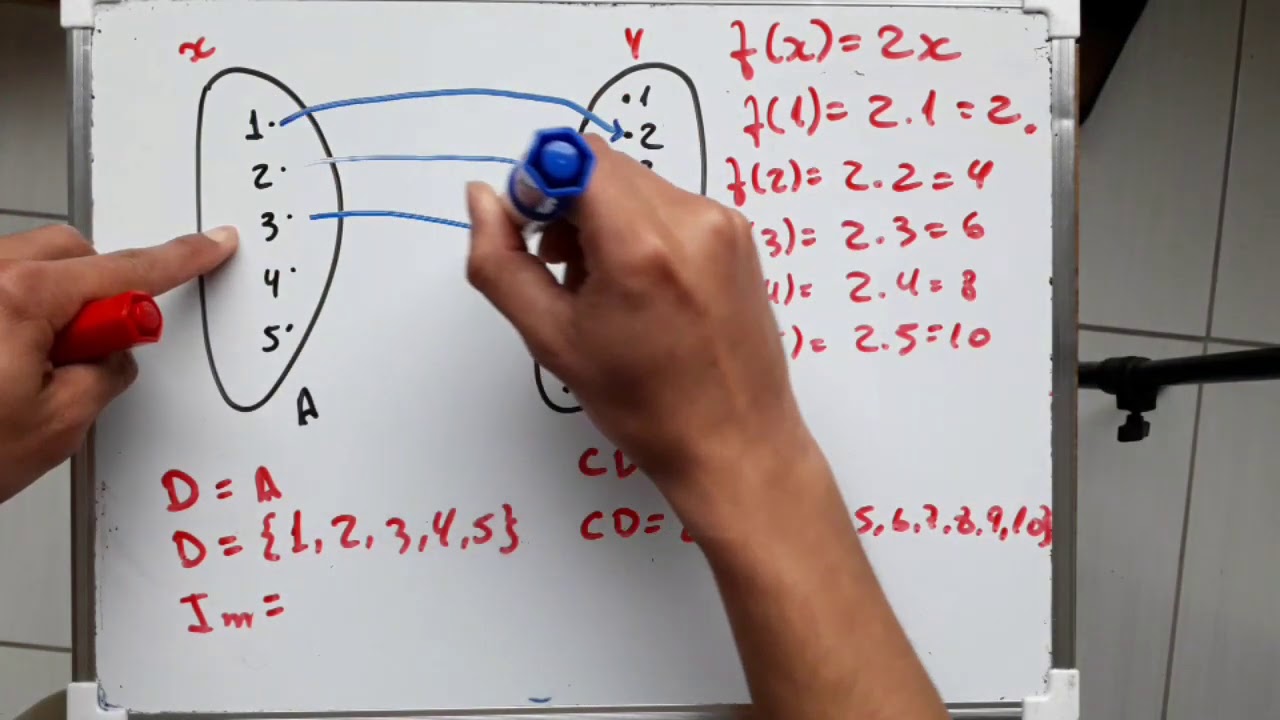 x
1
2
3
4
5
A
Y
1
2
f(x) = 2x
f(1) = 2.1 = 2.
f(2) = 2.2 = 4
3) = 2.3 = 6
) = 2.4 = 8
) = 2.5 = 10
D = A
D = {1, 2, 3, 4, 5}
Im =
CD
CD = 5, 6, 7, 8, 9, 10}